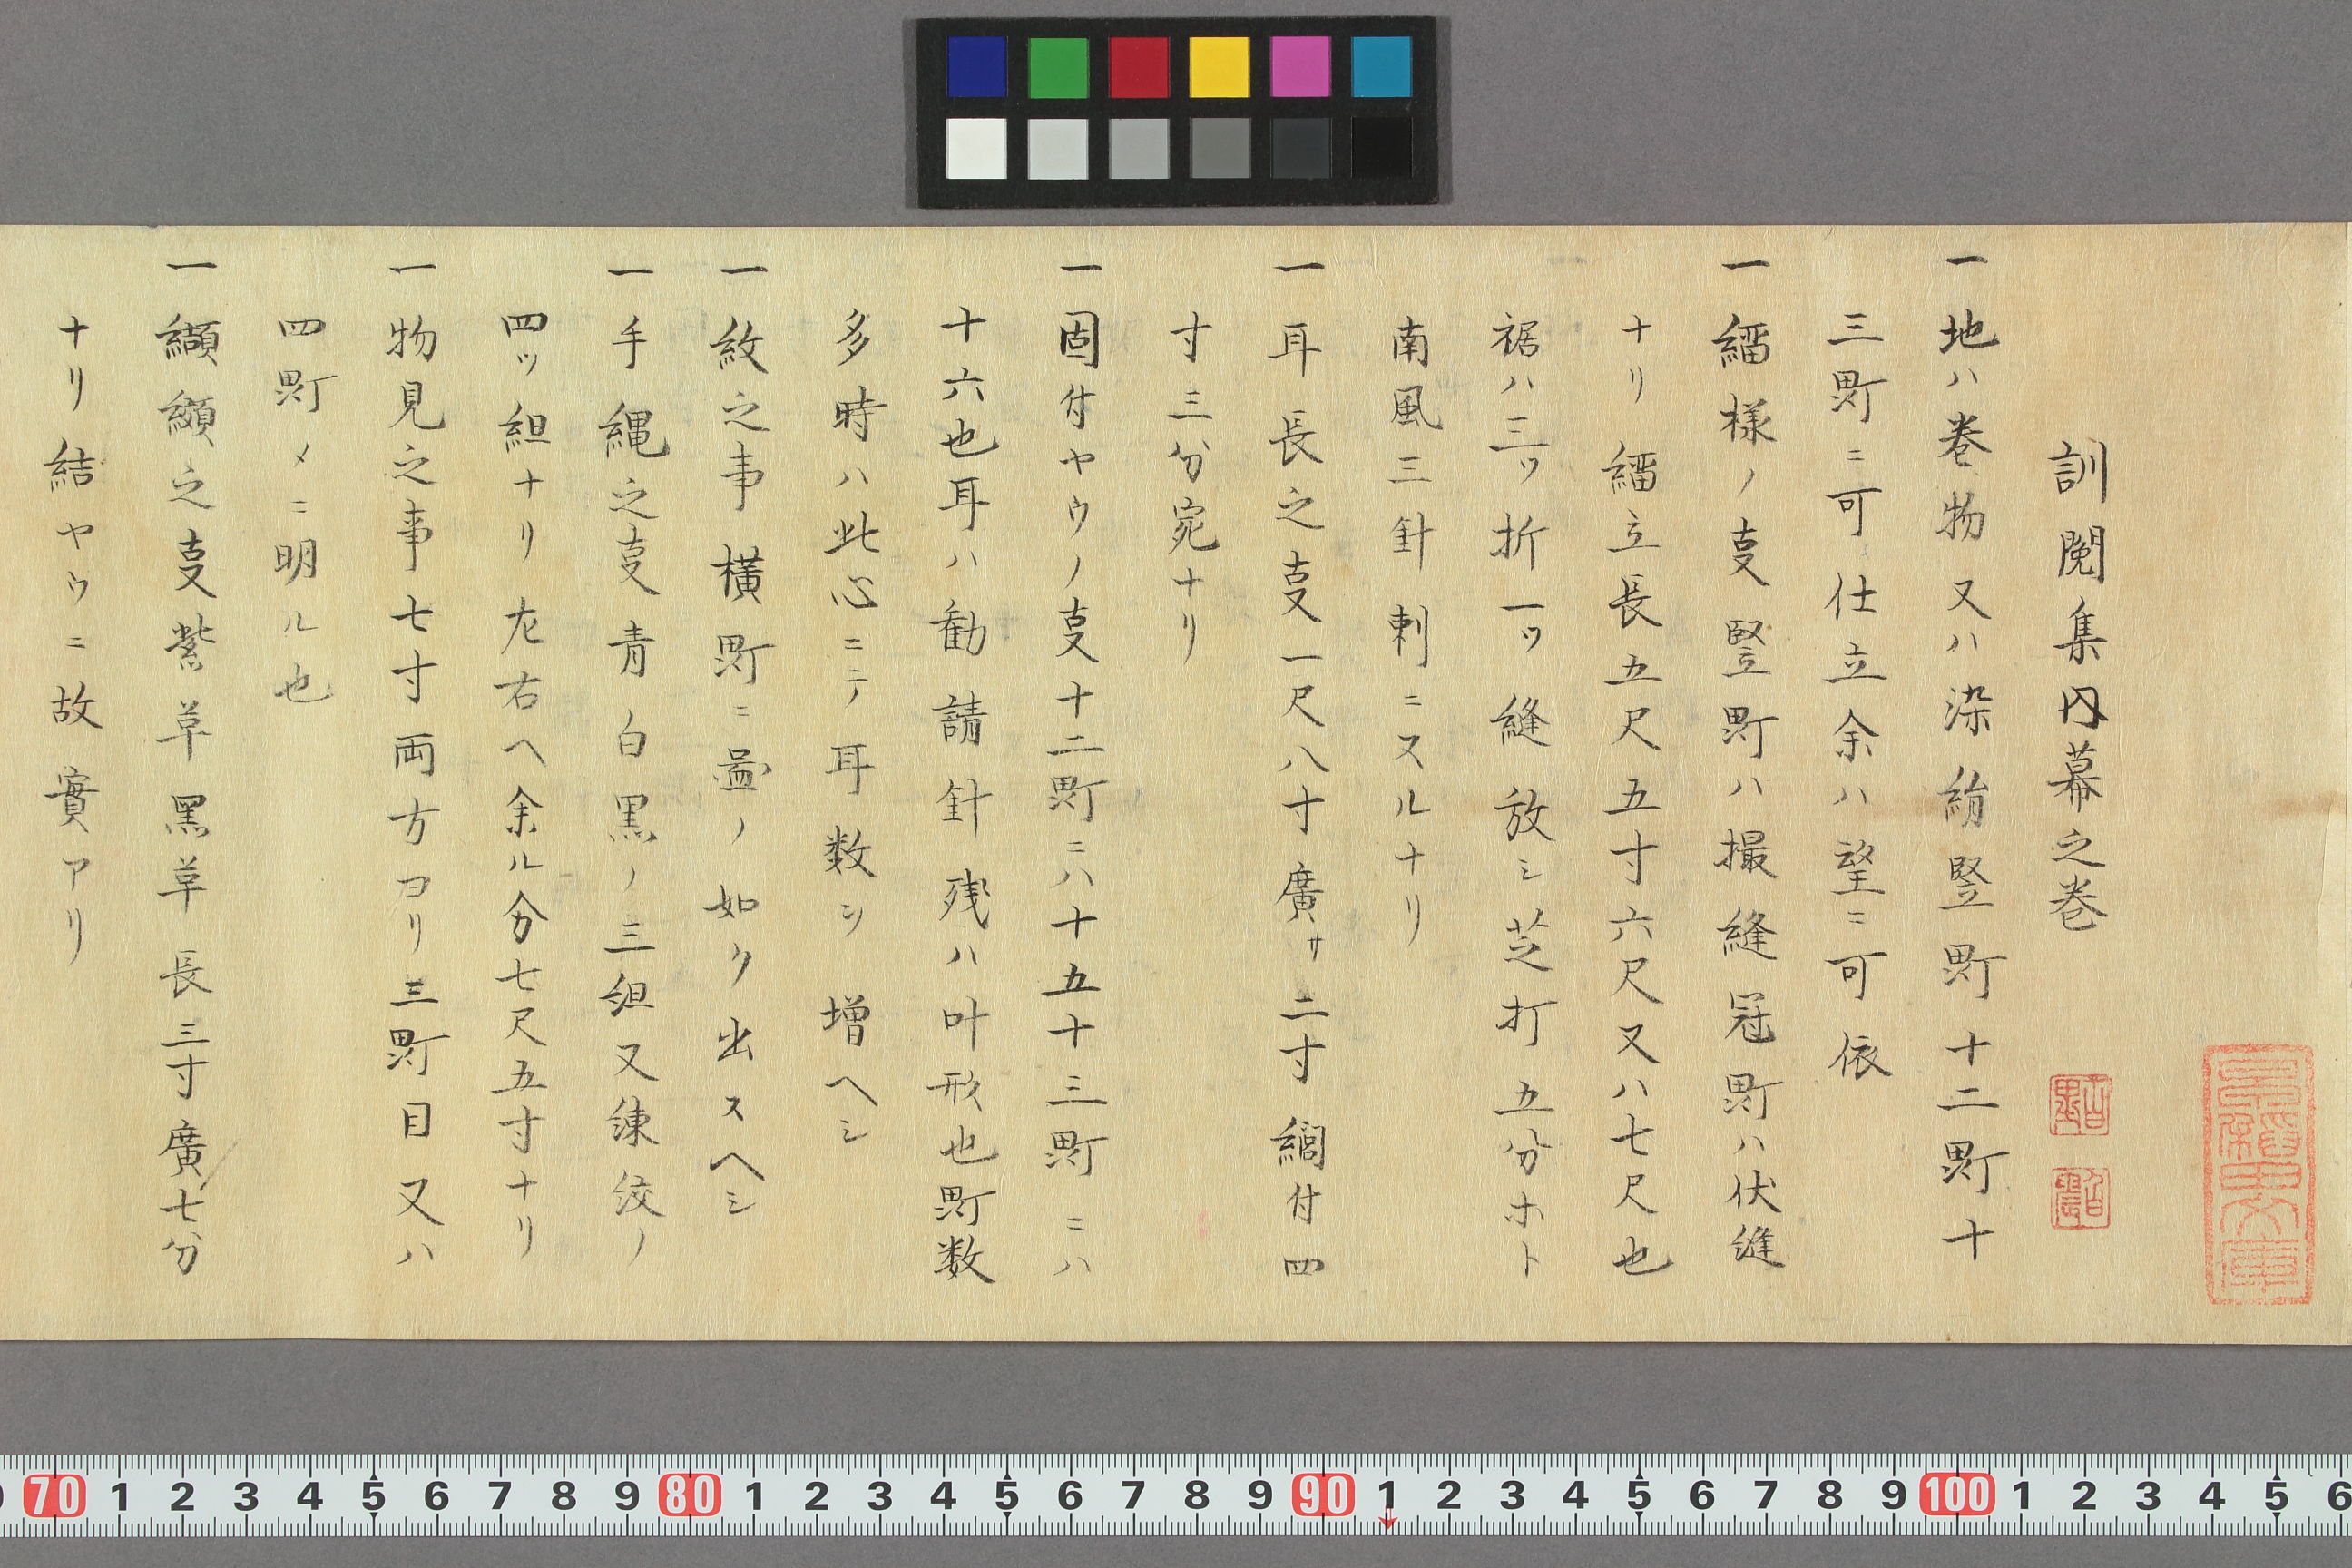 訓閲集内幕之巻
一地ハ巻物又ハ染絹竪町十二町十
三町ニ可仕立余ハ望ニ可依
一繙様ノ㕝竪町ハ撮縫冠町ハ伏縫
ナリ繙立長五尺五寸六尺又ハ七尺也
裾ハ三ツ折一ツ縫放シ芝打五分ホト
南風三針刺ニスルナリ
一耳長之㕝一尺八寸廣サ二寸縐付四
寸三分宛ナリ
一固付ヤウノ㕝十二町ニハ十五十三町ニハ
十六也耳ハ勧請針残ハ叶形也町数
多時ハ此心ニテ耳数ヲ増ヘシ
一紋之事横町ニ畾ノ如ク出スヘシ
一手縄之㕝青白黒ノ三組又練絞ノ
四ツ組ナリ左右ヘ余ル分七尺五寸ナリ
一物見之事七寸両方ヨリ三町目又ハ
四町メニ明ル也
一纈纐之㕝紫草黒草長三寸廣七分
ナリ結ヤウニ故實アリ
70 1 2 3 4 5 6 7 8 9 80 1 2 3 4 5 6 7 8 9 90 1 2 3 4 5 6 7 8 9 100 1 2 3 4 5 6